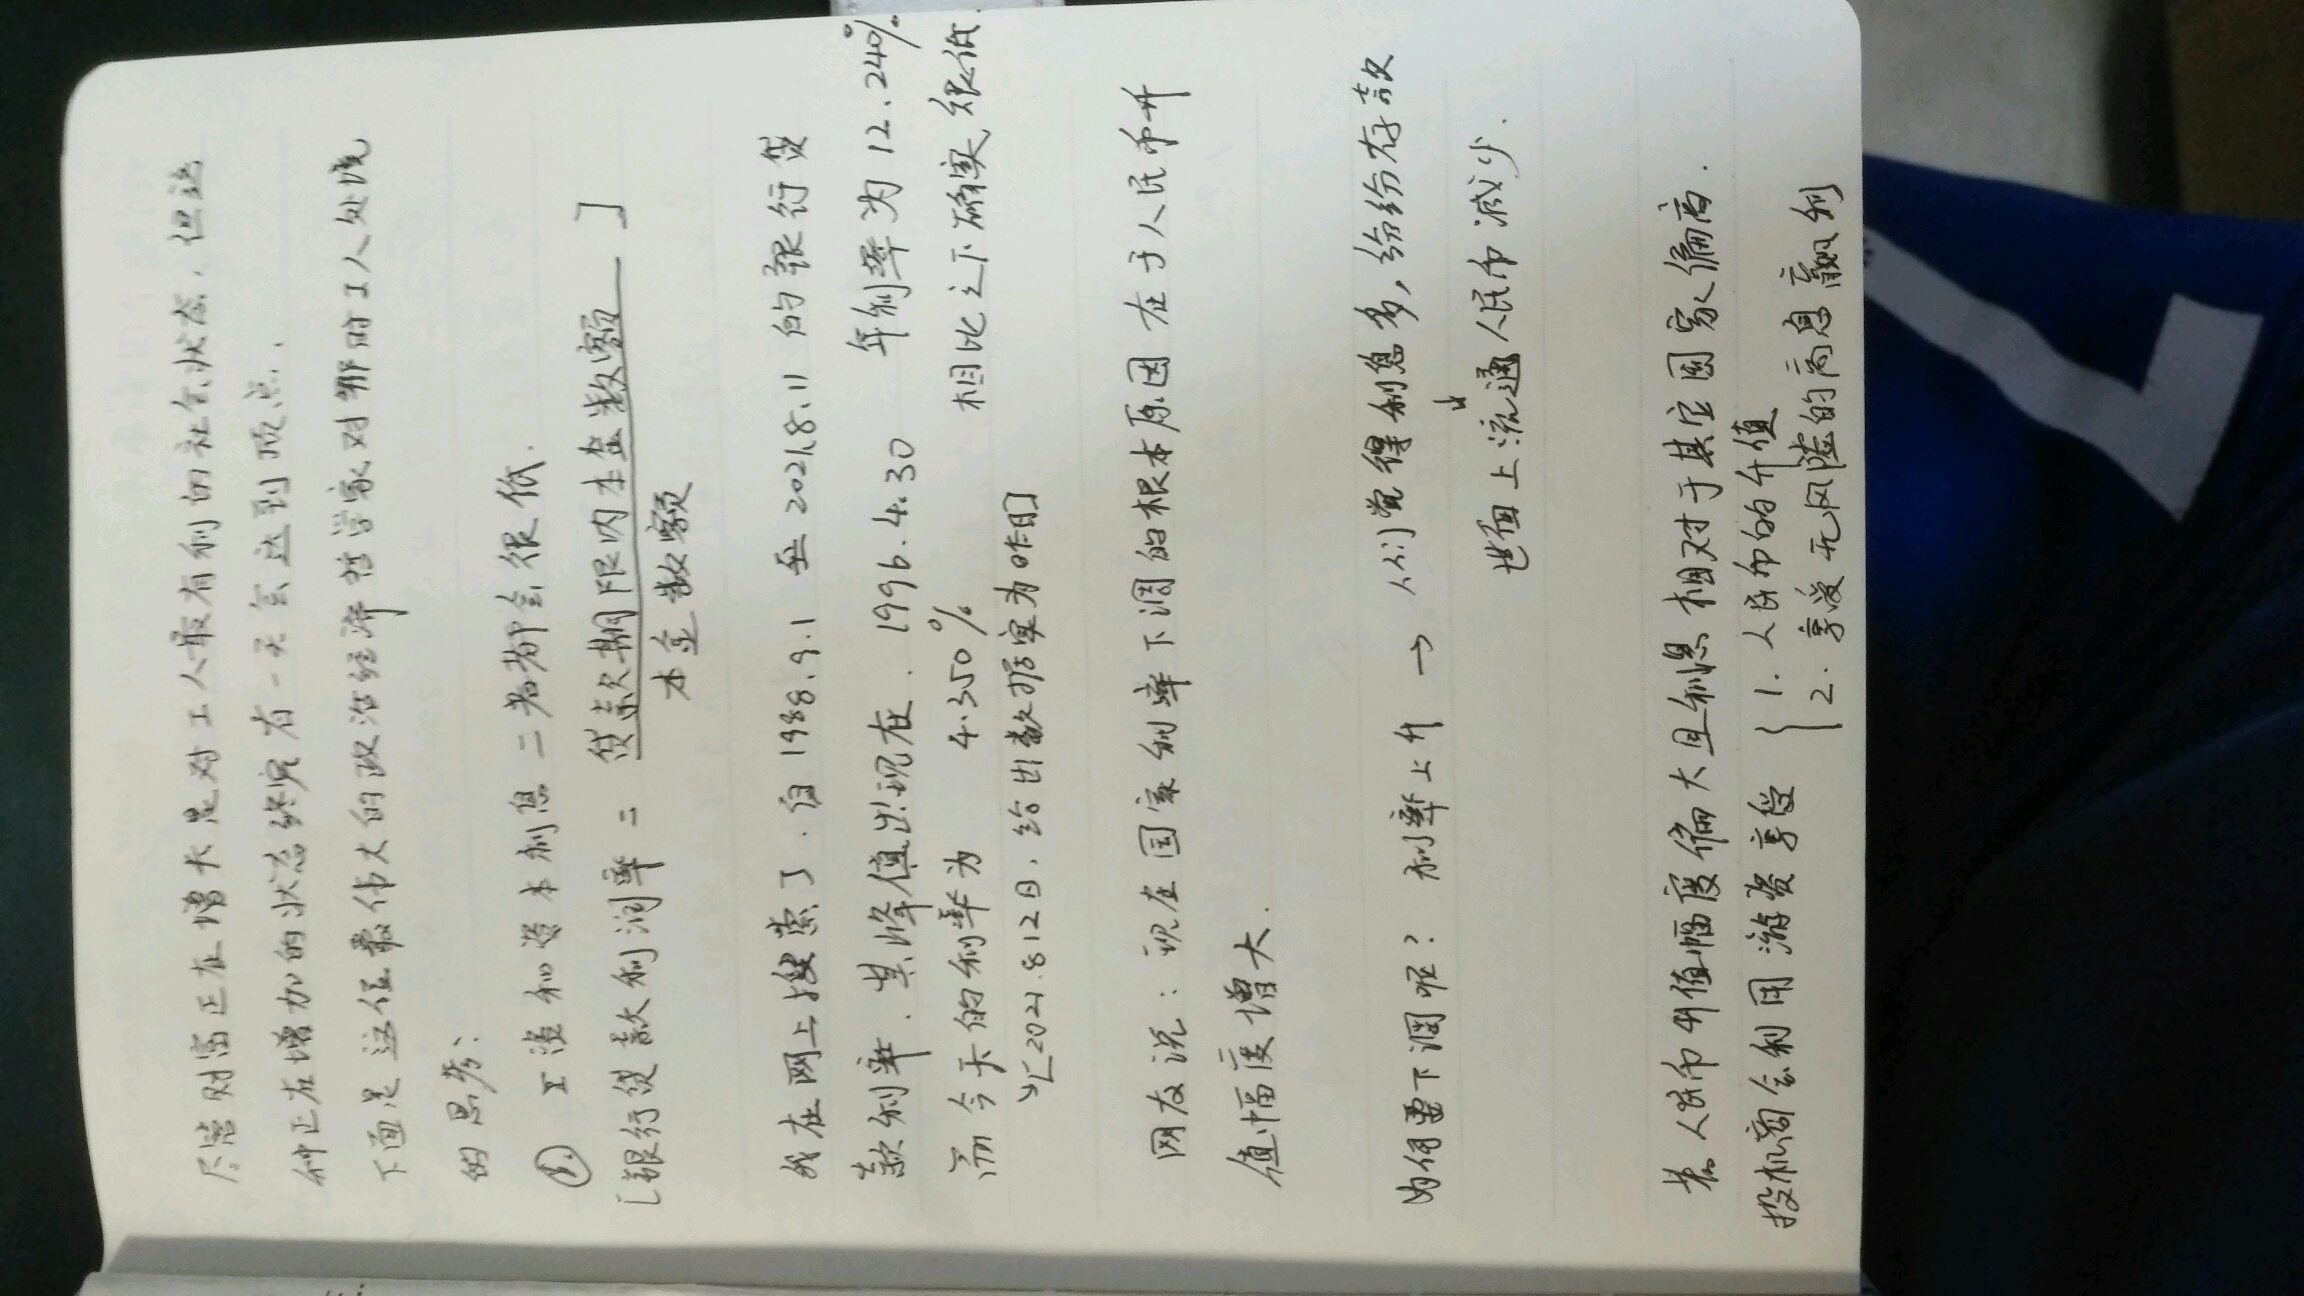 尽管财富正在增长是对工人最有利的社会状态，但这
种正在增加的状态终究有一天会达到顶点.
下面是这位最伟大的政治经济哲学家对那时工人处境
的思考：
①. 工资和资本利息二者都会很低.
[银行贷款利润率 = 贷款期限内本金数额 ]
本金数额
我在网上搜索了. 自1988.9.1 至 2021.8.11 的银行贷
款利率. 其峰值出现在. 1996.4.30 年利率为12.240%
而今天的利率为 4.350% 相比之下确实很低.
↘[2021.8.12日. 给出数据实为昨日]
网友说：现在国家利率下调的根本原因在于人民币升
值幅度增大.
为何要下调呢？ 利率上升 → 人们觉得利息多，纷纷存款
↓
世面上流通人民币减少.
若人民币升值幅度偏大且利息相对于其它国家偏高.
投机商会利用游资享受 { 1. 人民币的升值
2. 享受无风险的高息赢利